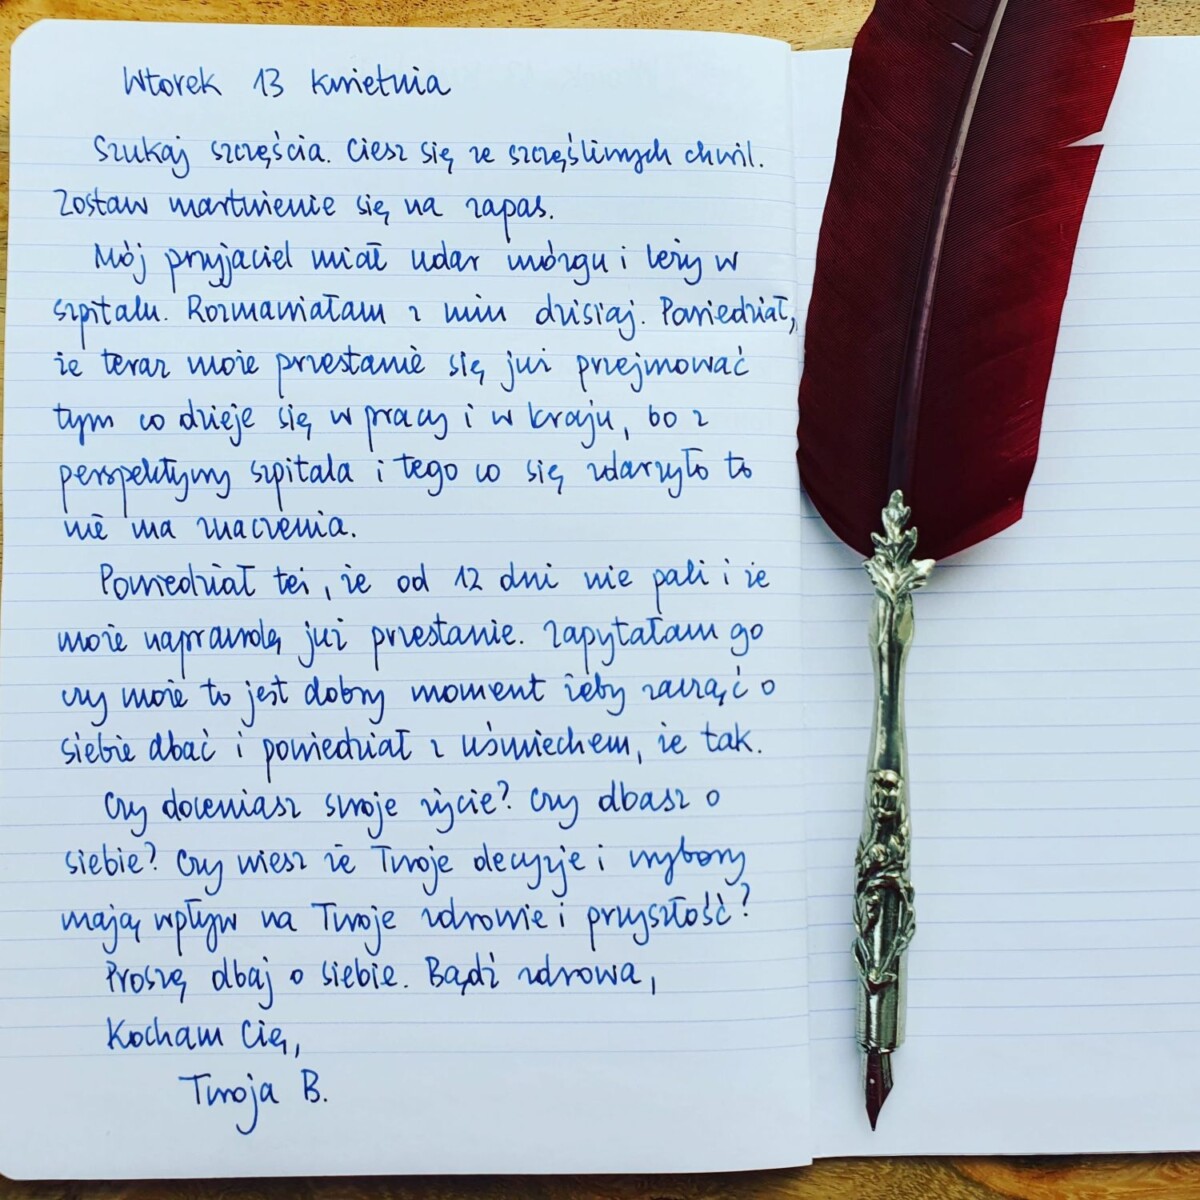 Wtorek 13 kwietnia
Szukaj szczęścia. Ciesz się ze szczęśliwych chwil.
Zostaw martwienie się na zapas.
Mój przyjaciel miał udar mózgu i leży w
szpitalu. Rozmawiałam z nim dzisiaj. Powiedział,
że teraz może przestanie się już przejmować
tym co dzieje się w pracy i w kraju, bo z
perspektywy szpitala i tego co się zdarzyło to
nie ma znaczenia.
Powiedział też, że od 12 dni nie pali i że
może naprawdę już przestanie. Zapytałam go
czy może to jest dobry moment żeby zacząć o
siebie dbać i powiedział z uśmiechem, że tak.
Czy doceniasz swoje życie? Czy dbasz o
siebie? Czy wiesz że Twoje decyzje i wybory
mają wpływ na Twoje zdrowie i przyszłość?
Proszę dbaj o siebie. Bądź zdrowa,
Kocham Cię,
Twoja B.